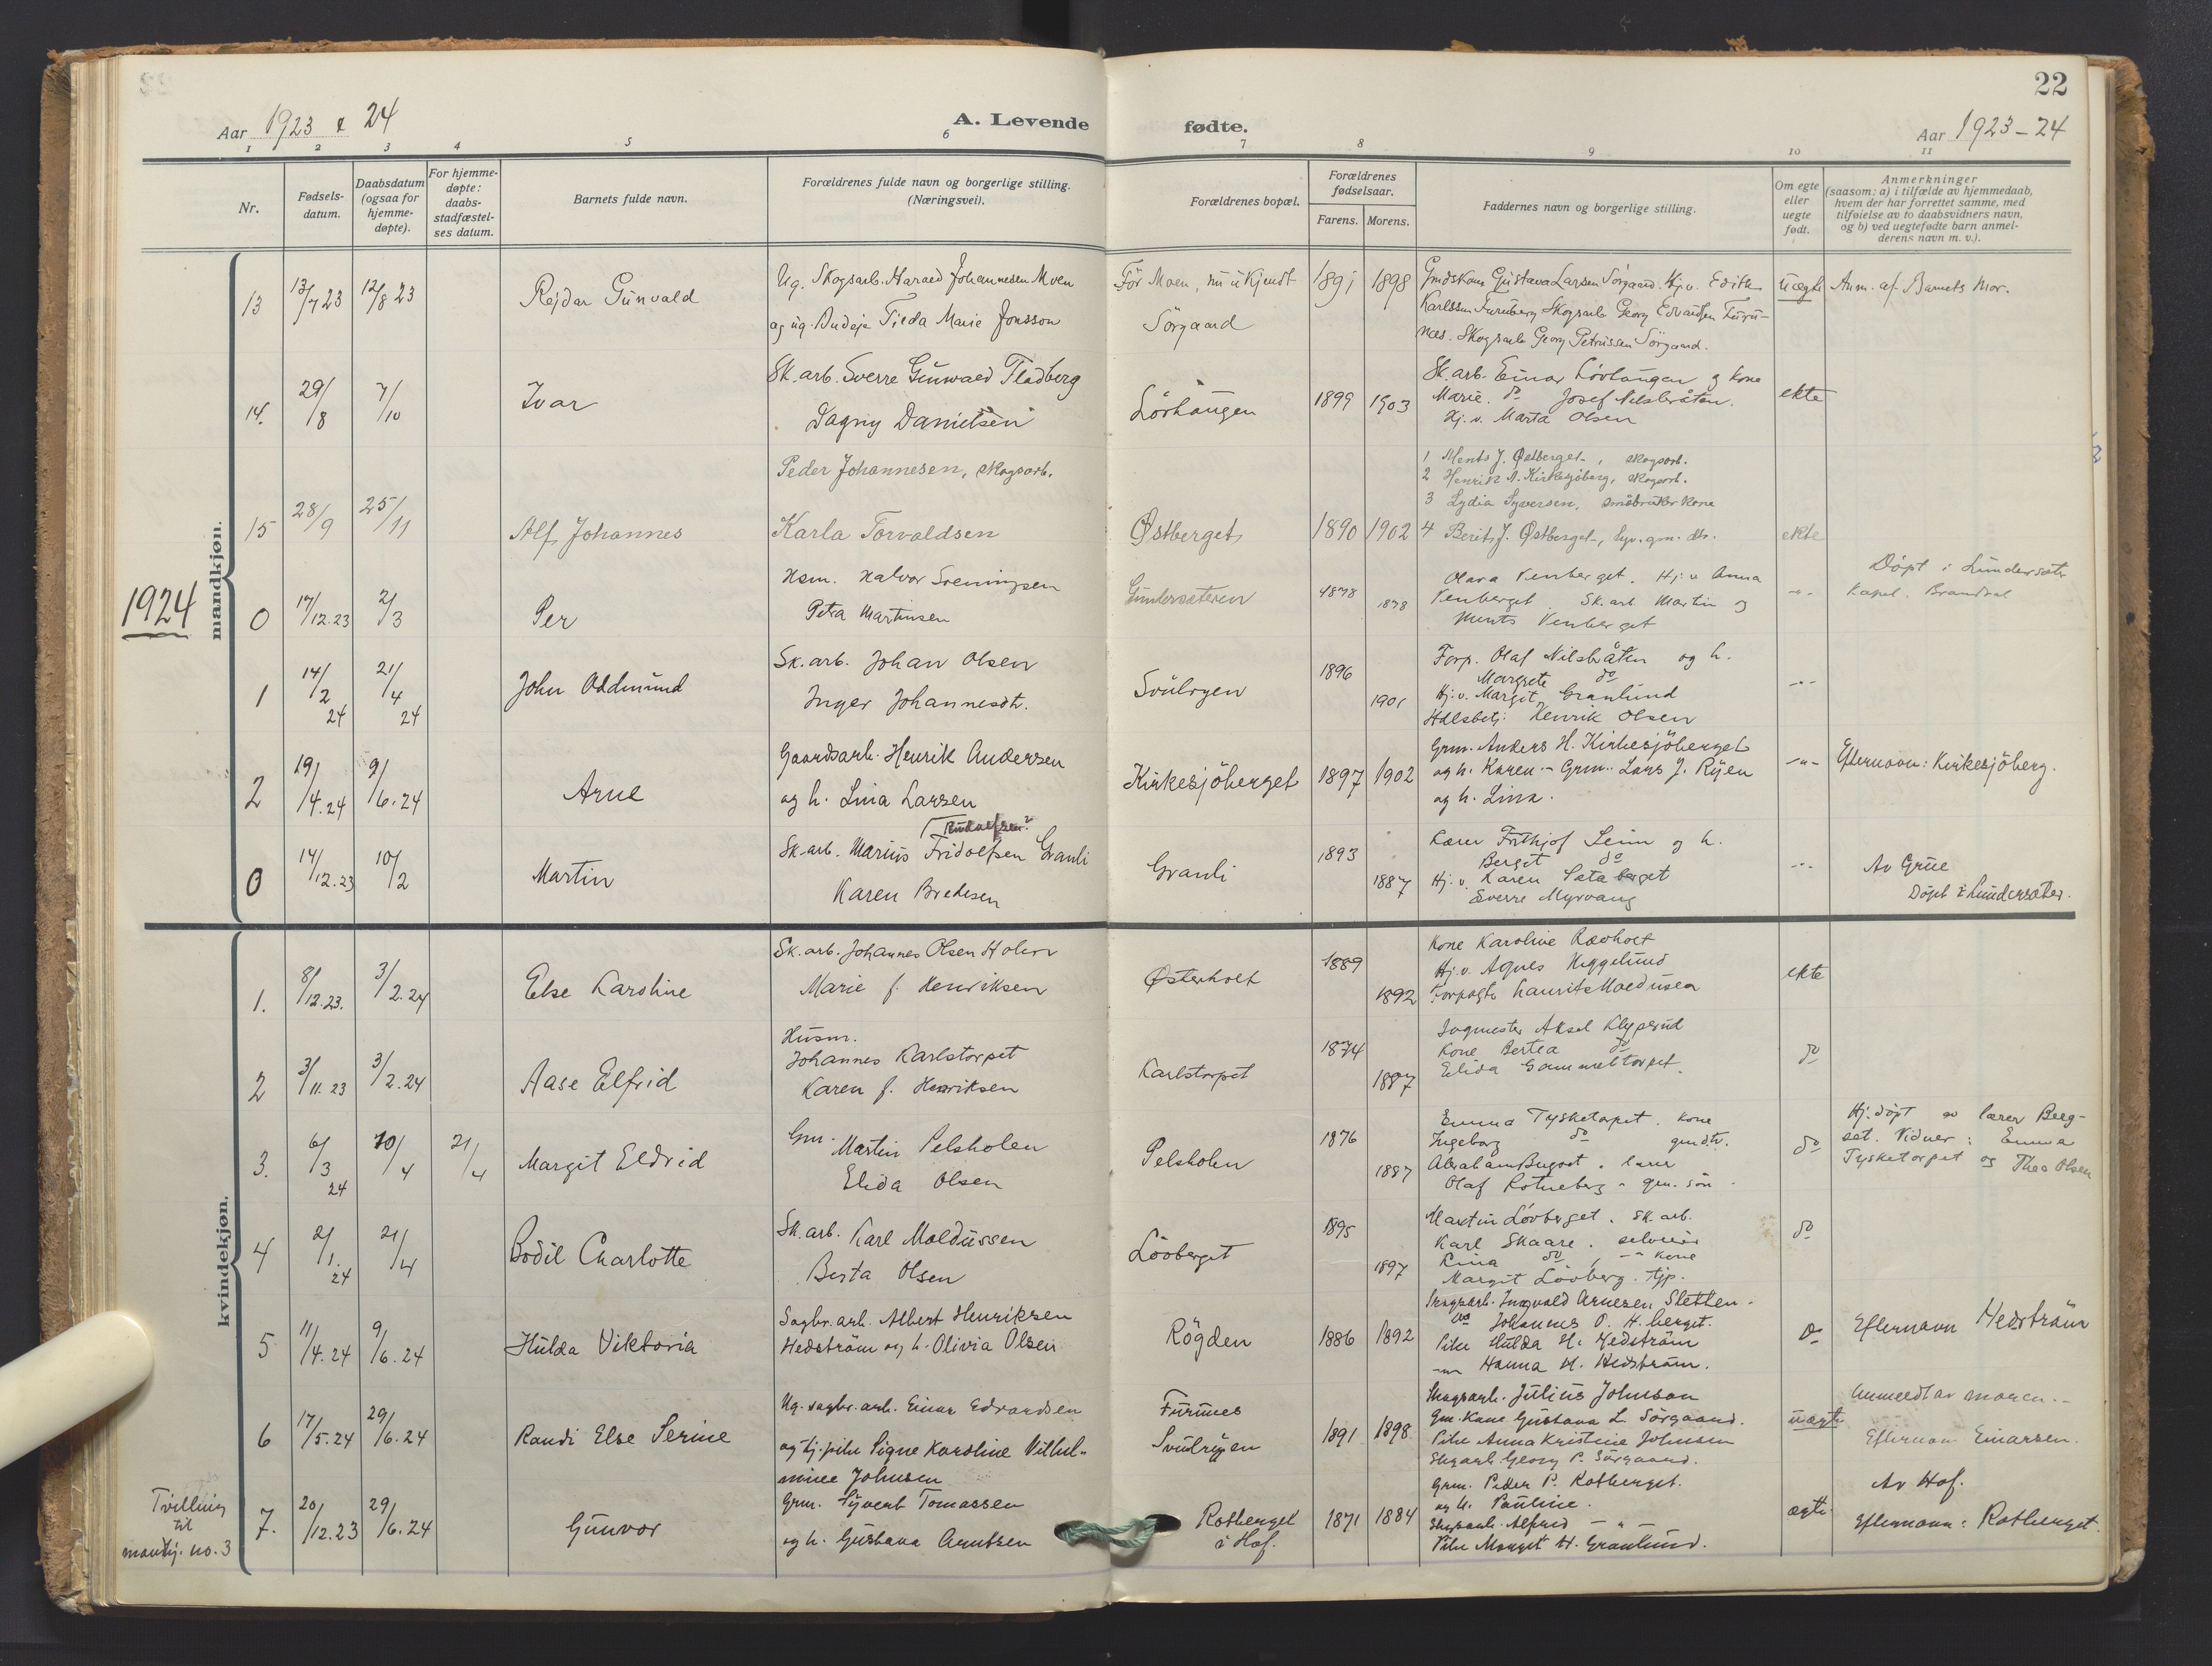 22
Aar 1923 & 24
A. Levende
fødte.
Aar 1923-24
1 2 3 4 5 6 7 8 9 10 11
Nr.
Fødsels-
datum.
Daabsdatum
(ogsaa for
hjemme-
døpte).
For hjemme-
døpte:
daabs-
stadfæstel-
ses datum.
Barnets fulde navn.
Forældrenes fulde navn og borgerlige stilling.
(Næringsvei).
Forældrenes bopæl.
Forældrenes
fødselsaar.
Farens. Morens.
Faddernes navn og borgerlige stilling.
Om egte
eller
uegte
født.
Anmerkninger
(saasom: a) i tilfælde av hjemmedaab,
hvem der har forrettet samme, med
tilføielse av to daabsvidners navn,
og b) ved uegtefødte barn anmel-
derens navn m. v.).
mandkjøn.
1924
13 13/7 23 12/8 23 Rejdar Gunvald
Ug. Skogsarb. Harald Johannesen Moen
og ug. Budeje Tilda Marie Jonsson
För Moen, nu ukjendt
Sørgaard
1891 1898
Gmdskone Gustava Larsen Sørgaard. Hj.v. Edith
Karlssen Furuberg Skogsarb Georg Edvardsen Furu-
nes. Skogsarb Georg Petrussen Sørgaard.
uægte
Anm. af Barnets Mor.
14. 29/8 7/10 Ivar
Sk. arb. Sverre Gunwald Fladberg
Dagny Danielsen
Lövhaugen
1899 1903
Sk. arb. Einar Lövhaugen og kone
Marie do Josef Nilsbråten.
Hj. v. Marta Olsen
ekte
15 28/9 25/11 Alf Johannes
Peder Johannesen, skogsarb.
Karla Torvaldsen
Østberget
1890 1902
1 Ments J. Østberget, skogsarb.
2 Henrik A. Kirkesjöberg, skogsarb.
3 Lydia Syversen, småbruker kone
4 Berit J. Østberget,
ekte
0 17/12.23 2/3 Per
Hsm. Halvor Sveningsen
Petra Martinsen
Gundersæteren
1878 1878
Olava Venberget. Hj. v Anna
Venberget Sk. arb Martin og
Ments Venberget
-"-
Döpt i Lundersæter
Kapel. Brandval
1 14/2 24 21/4 24 John Oddmund
Sk. arb. Johan Olsen
Inger Johannesdtr.
Svulryen
1896
1901
Forp. Olaf Nilsbråten og h.
Margrete do
Hj. v. Margit Granlund
Hdlsbetj: Henrik Olsen
-"-
2 19/4.24 9/6.24 Arne
Gaardsarb. Henrik Andersen
og h. Lina Larsen
Kirkesjöberget
1897 1902
Grm. Anders H. Kirkesjöberget
og h. Karen - Grm. Lars J. Ryen
og h. Lina.
-"-
Efternavn: Kirkesjöberg.
0 14/12.23 10/2 Martin
Rudolfsen?
Sk. arb. Marius Fridolfsen Granli
Karen Bredesen
Granli
1893
1887
Lærer Frithjof Leim og h.
Bergit do
Hj. v. Karen Sætaberget
Sverre Myrvang
-"-
Av Grue
Döpt i Lundersæter.
kvindekjøn.
1. 8/12.23. 3/2.24 Else Karoline
Sk. arb. Johannes Olsen Holen
Marie f. Henriksen
Østerholt
1889
1892
Kone Karoline Rævholt
Hj. v. Agnes Heggelund
Forpagt. Laurits Moldusen
ekte
2 3/11.23 3/2.24 Aase Elfrid
Husm.
Johannes Karlstorpet
Karen f. Henriksen
Karlstorpet
1874
1887
Aksel Klyperud
Kone Bertea do
Elida Gammeltorpet.
do
3. 6/3 24 10/4 21/4 Margit Eldrid
Gm. Martin Pelsholen
Elida Olsen
Pelsholen
1876
1887
Emma Tysketorpet. kone
Ingeborg do gmdtr.
Abraham Bugset. lærer
Olaf Rotneberg - gm. sön
do
Hj. döpt av lærer Berg-
set. Vidner: Emma
Tysketorpet og Thea Olsen
4 2/1. 24 21/4 Bodil Charlotte
Sk. arb. Karl Moldussen
Berta Olsen
Lövberget
1895
1897
Martin Lövberget. sk. arb.
Karl Skaare. selveier
Lina do, -" kone
Margit Lövberg. tjp.
do
5 11/4.24 9/6.24 Hulda Viktoria
Sagbr. arb. Albert Henriksen
Hedström og h. Olivia Olsen
Rögden
1886 1892
Skogsarb. Ingvald Arnesen Sletten.
do Johannes O. H.berget.
Pike Hulda H. Hedström
-"- Hanna H. Hedström.
do
Efternavn Hedström
6 17/5.24 29/6.24 Randi Else Serine
Ug. sagbr. arb. Einar Edvardsen
og tj. pike Signe Karoline Vilhel-
mine Johnsen
Furunes
Svulryen
1891 1898
Skogsarb. Julius Johnson
Gm. Kone Gustava L. Sørgaard.
Pike Anna Kristine Johnsen
Skgarb. Georg P. Sørgaard.
uægte
Anmeldt av moren.-
Efternavn Einarsen.
Tvilling
til
mandkj. no. 3
7. 20/12.23 29/6.24 Gunvor
Grm. Syvert Tomassen
og h. Gustava Arntsen
Rotberget
i Hof.
1871 1884
Grm. Peder P. Rotberget.
og h. Pauline.
Skogsarb. Alfred -"-
Pike Margit H. Granlund.
ægte
Av Hof.
Efternavn: Rotberget.